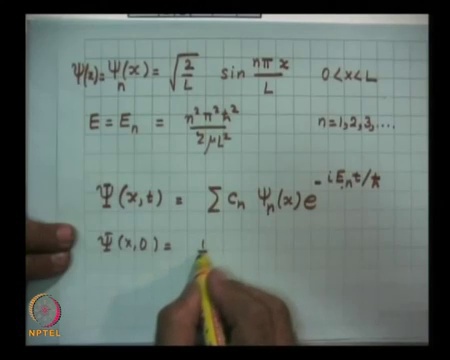 Ψ(x) = Ψₙ(x) = √(2/L) sin nπx/L 0 < x < L
E = Eₙ = n²π²ħ²/2μL² n = 1, 2, 3, ....
Ψ(x,t) = Σ cₙ Ψₙ(x) e^(-iEₙt/ħ)
Ψ(x,0) = 1
NPTEL